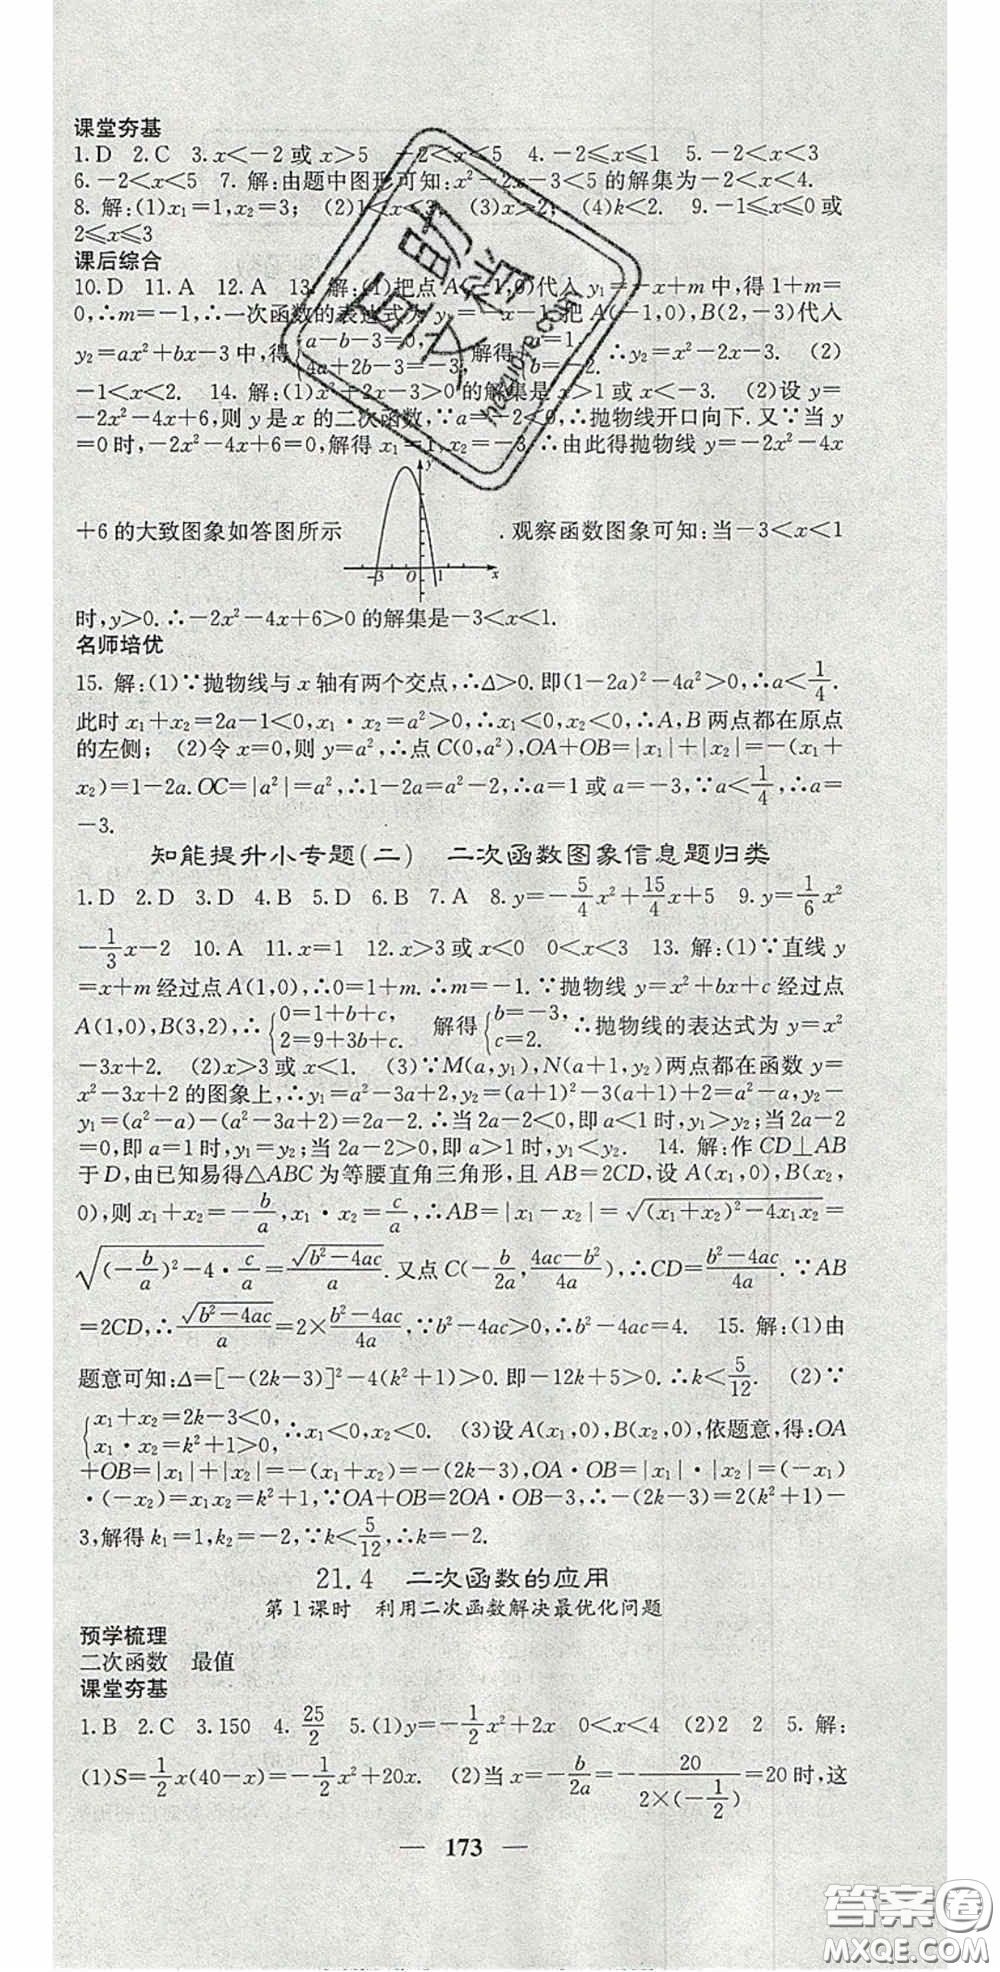 课堂夯基
1.D 2.C 3.x<-2或x>5 -2<x<5 4.-2≤x≤1 5.-2<x<3
6.-2<x<5 7.解:由题中图形可知:x²-2x-3<5的解集为-2<x<4.
8.解:(1)x₁=1,x₂=3; (2)1<x<3; (3)x>2; (4)k<2. 9.-1≤x≤0或
2≤x≤3
课后综合
10.D 11.A 12.A 13.解:(1)把点A(-1,0)代入y₁=-x+m中,得1+m=
0,∴m=-1,∴一次函数的表达式为y₁=-x-1.把A(-1,0),B(2,-3)代入
y₂=ax²+bx-3中,得{a-b-3=0, 4a+2b-3=-3, 解得{a=1, b=-2. ∴y₂=x²-2x-3. (2)
-1<x<2. 14.解:(1)x²+2x-3>0的解集是x>1或x<-3. (2)设y=
-2x²-4x+6,则y是x的二次函数,∵a=-2<0,∴抛物线开口向下.又∵当y
=0时,-2x²-4x+6=0,解得x₁=1,x₂=-3.∴由此得抛物线y=-2x²-4x
+6的大致图象如答图所示 .观察函数图象可知:当-3<x<1
y
-3 O 1 x
时,y>0.∴-2x²-4x+6>0的解集是-3<x<1.
名师培优
15.解:(1)∵抛物线与x轴有两个交点,∴Δ>0.即(1-2a)²-4a²>0,∴a<1/4.
此时x₁+x₂=2a-1<0,x₁·x₂=a²>0,∴x₁<0,x₂<0,∴A,B两点都在原点
的左侧; (2)令x=0,则y=a²,∴点C(0,a²),OA+OB=|x₁|+|x₂|=-(x₁+
x₂)=1-2a.OC=|a²|=a²,∴1-2a=a²-2,∴a=1或a=-3,∵a<1/4,∴a=
-3.
知能提升小专题(二) 二次函数图象信息题归类
1.D 2.D 3.D 4.B 5.D 6.B 7.A 8.y=-5/4x²+15/4x+5 9.y=1/6x²
-1/3x-2 10.A 11.x=1 12.x>3或x<0 0<x<3 13.解:(1)∵直线y
=x+m经过点A(1,0),∴0=1+m.∴m=-1.∵抛物线y=x²+bx+c经过点
A(1,0),B(3,2),∴{0=1+b+c, 2=9+3b+c. 解得{b=-3, c=2. ∴抛物线的表达式为y=x²
-3x+2. (2)x>3或x<1. (3)∵M(a,y₁),N(a+1,y₂)两点都在函数y=
x²-3x+2的图象上,∴y₁=a²-3a+2,y₂=(a+1)²-3(a+1)+2=a²-a,y₂-
y₁=(a²-a)-(a²-3a+2)=2a-2.∴当2a-2<0,即a<1时,y₁>y₂;当2a-2
=0,即a=1时,y₁=y₂;当2a-2>0,即a>1时,y₁<y₂. 14.解:作CD⊥AB
于D,由已知易得△ABC为等腰直角三角形,且AB=2CD,设A(x₁,0),B(x₂,
0),则x₁+x₂=-b/a,x₁·x₂=c/a,∴AB=|x₁-x₂|=√((x₁+x₂)²-4x₁x₂)=
√((-b/a)²-4·c/a)=√(b²-4ac)/a.又点C(-b/2a,(4ac-b²)/4a),∴CD=(b²-4ac)/4a.∵AB
=2CD,∴√(b²-4ac)/a=2×(b²-4ac)/4a,∵b²-4ac>0,∴b²-4ac=4. 15.解:(1)由
题意可知:Δ=[-(2k-3)]²-4(k²+1)>0.即-12k+5>0.∴k<5/12. (2)∵
{x₁+x₂=2k-3<0, x₁·x₂=k²+1>0, ∴x₁<0,x₂<0. (3)设A(x₁,0),B(x₂,0),依题意,得:OA
+OB=|x₁|+|x₂|=-(x₁+x₂)=-(2k-3),OA·OB=|x₁|·|x₂|=(-x₁)
·(-x₂)=x₁x₂=k²+1,∵OA+OB=2OA·OB-3,∴-(2k-3)=2(k²+1)-
3,解得k₁=1,k₂=-2,∵k<5/12,∴k=-2.
21.4 二次函数的应用
第1课时 利用二次函数解决最优化问题
预学梳理
二次函数 最值
课堂夯基
1.B 2.C 3.150 4.25/2 5.(1)y=-1/2x²+2x 0<x<4 (2)2 2 5.解:
(1)S=1/2x(40-x)=-1/2x²+20x. (2)当x=-b/2a=-20/(2×(-1/2))=20时,这
— 173 —
答案圈
MXQE.COM